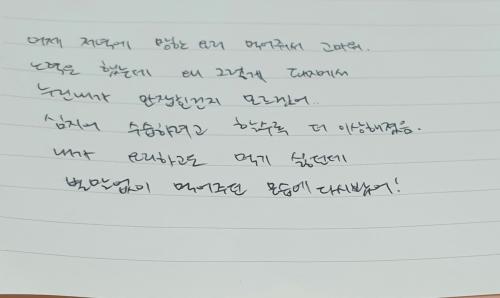 어제 저녁에 망한 요리 먹어줘서 고마워.
노력은 했는데 왜 그렇게 돼지에서
누린내가 안잡힌건지 모르겠어..
심지어 수습하려고 할수록 더 이상해졌음.
내가 요리하고도 먹기 싫던데
별말없이 먹어주던 모습에 다시봤어!